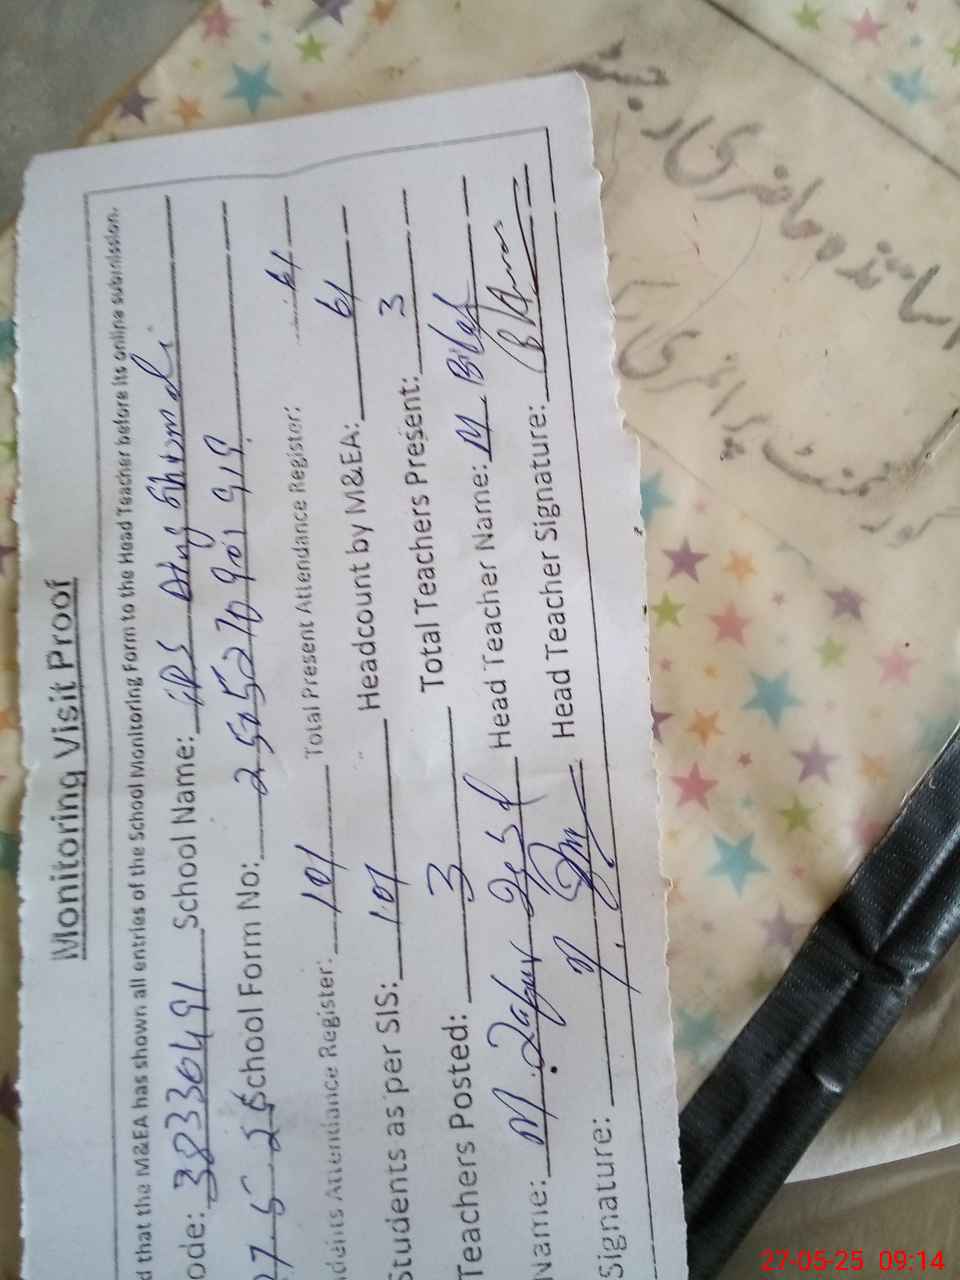 Monitoring Visit Proof
d that the M&EA has shown all entries of the School Monitoring Form to the Head Teacher before its online submission.
ode: 38330491 School Name: GPS
27-5-25 School Form No: 2505270901919
dents Attendance Register: 101 Total Present Attendance Register: 61
Students as per SIS: 101 Headcount by M&EA: 61
Teachers Posted: 3 Total Teachers Present: 3
Name: M. Zafar Head Teacher Name: M Bilal
Signature: Head Teacher Signature:
اساتذہ حاضری رجسٹر
گورنمنٹ پرائمری
27-05-25 09:14